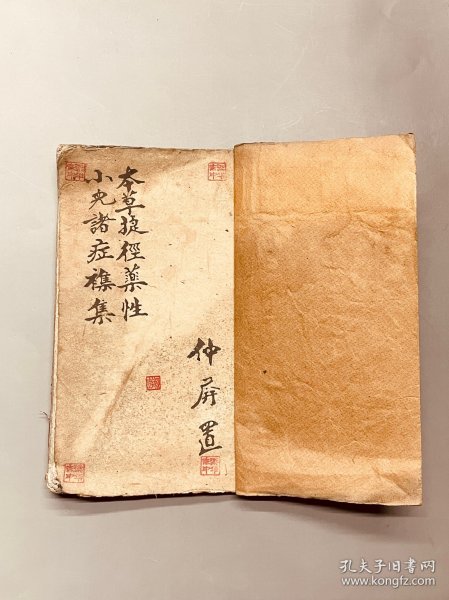 本草捷徑藥性
小兒諸症襍集
仲屏置
孔夫子旧书网
www.kongfz.com